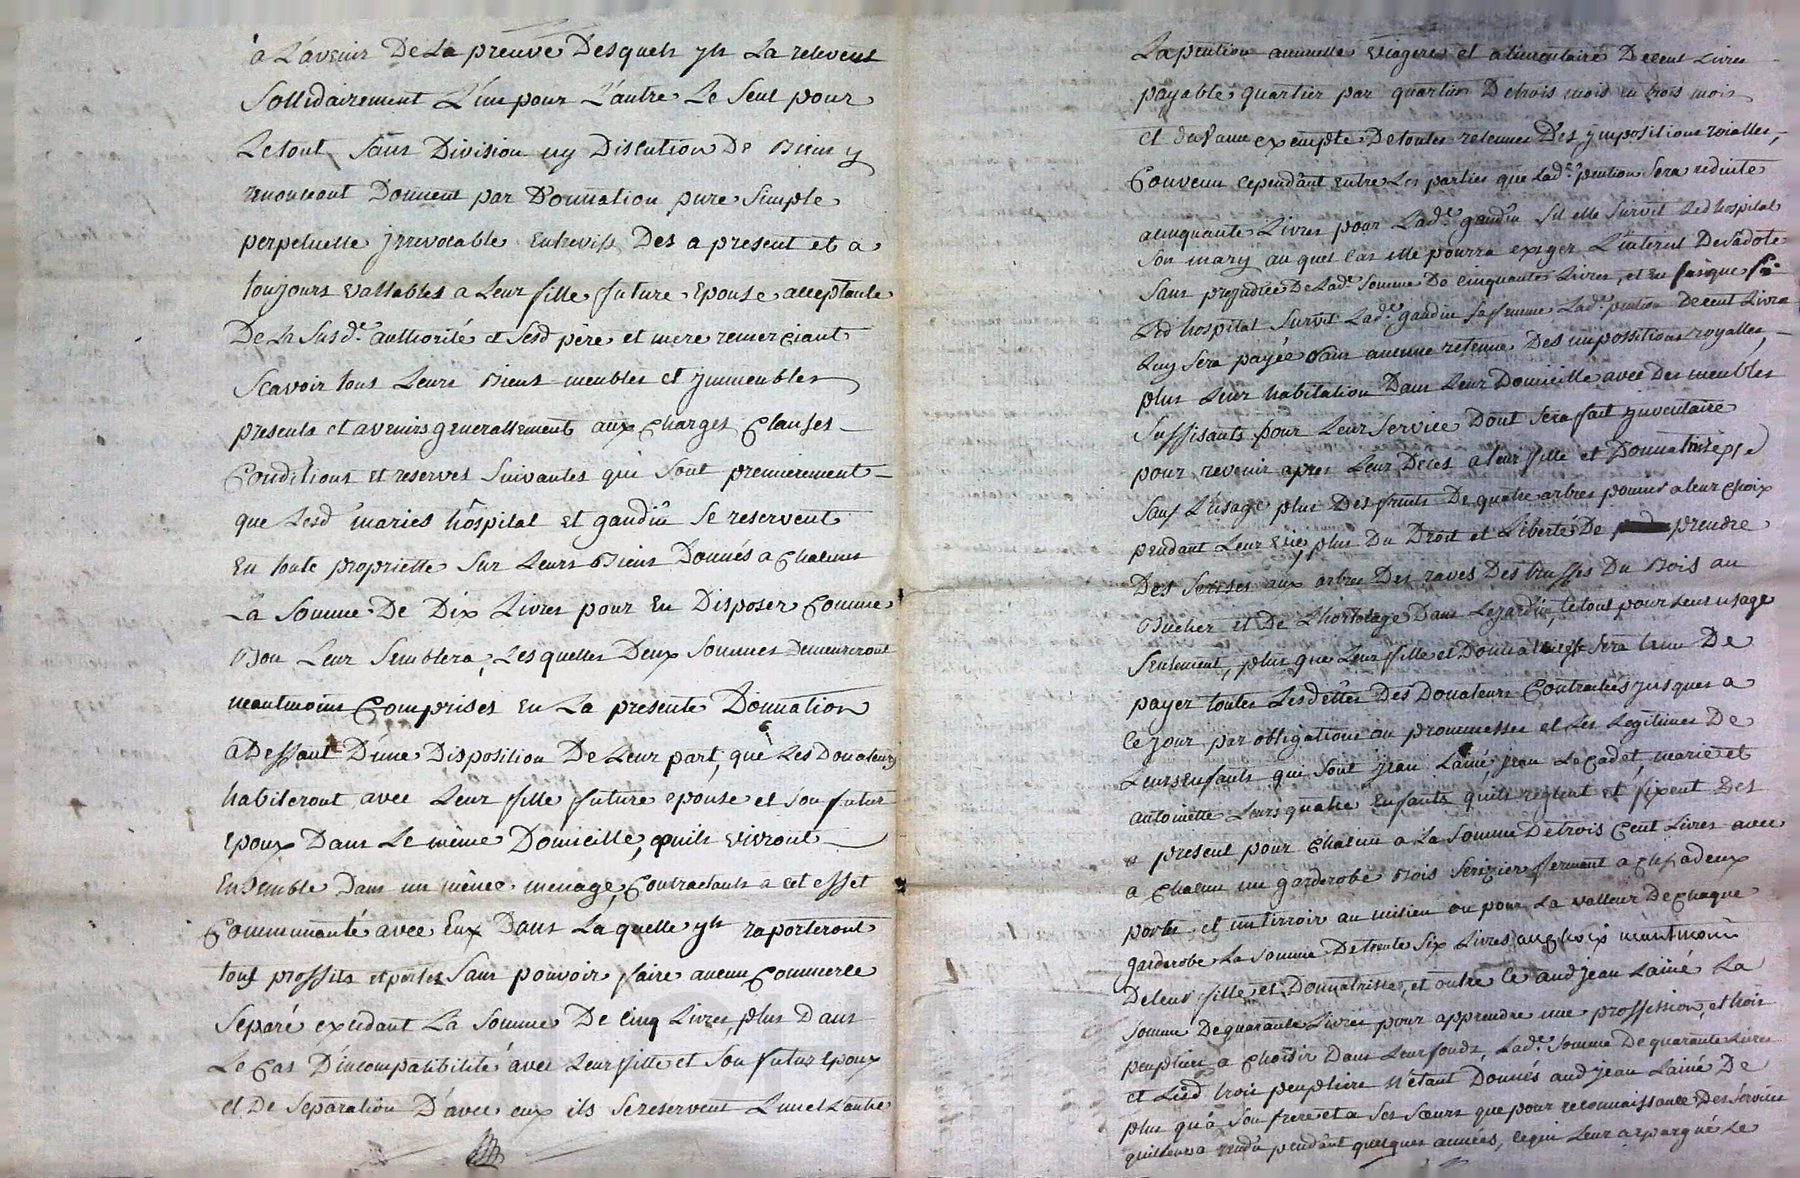 a L'avenir De La preuve Desquels yls La relevent
Sollidairement L'un pour L'autre Le Seul pour
Le tout Sans Division ny Discution De Biens y
renonceant Donnent par Donnation pure Simple
perpetuelle jrrevocable Entrevifs Des a present et a
toujours vallables a Leur fille future Epouse acceptante
De La Susd.e authorité et Sesd père et mere remerciant
Scavoir tous Leurs Biens meubles et jmmeubles
presents et avenirs generallement aux Charges Clauses
Conditions et reserves Suivantes qui Sont premierement
que Lesd mariés hospital et gaudin Se reservent
En toute propriette Sur Leurs Biens Donnés a Chacuns
La Somme De Dix Livres pour En Disposer Comme
Bon Leur Semblera, Les quelles Deux Sommes Demeureront
neantmoins Comprises En La presente Donnation
a Deffaut D'une Disposition De Leur part, que Les Donateurs
habiteront avec Leur fille future epouse et Son futur
Epoux Dans Le même Domicille, quils vivront
Ensemble Dans un même menage, Contractants a cet effet
Communauté avec Eux Dans La quelle yls raporteront
tous proffits et pertes Sans pouvoir faire aucun Commerce
Separé excedant La Somme De Cinq Livres, plus Dans
Le Cas D'incompatibilité avec Leur fille et Son futur Epoux
et De Separation D'avec eux ils Se reservent L'un et L'autre
La pention annuelle viagere et alimentaire De cent Livres
payable quartier par quartier De trois mois en trois mois
et d'avance exempte De toutes retenues Des jmpositions roialles,
Convenu cependant entre Les parties que Lad.e pention Sera reduite
a cinquante Livres pour Lad.e gaudin Sil elle Survit Led hospital
Son mary au quel cas elle pourra exiger L'interest De Sa dote
Sans prejudice De Lad.e Somme De Cinquante Livres, et En Cas que
Led hospital Survit Lad.e gaudin Sa femme Lad.e pention De cent Livres
Luy Sera payée Sans aucune retenue Des impositions royalles,
plus Leur habitation Dans Leur Domicille avec Des meubles
Suffisants pour Leur Service Dont Sera fait jnventaire
pour revenir apres Leur Deces a leur fille et Donnatrisse
Sauf L'usage plus Des fruits De quatre arbres pomiers a leur Choix
pendant Leur vie, plus Du Droit et Liberté De prendre
Des Serises aux arbres Des raves Des truffes Du Bois au
Bucher et De L'hortolage Dans Le jardin, le tout pour Leur usage
Seulement, plus que Leur fille et Donnatrisse Sera tenue De
payer toutes Les dettes Des Donateurs Contractées jusques a
Ce jour par obligations ou prommesses et Les Legitimes De
Leurs Enfants qui Sont jean L'ainé, jean Le Cadet, marie et
antoinette Leurs quatre Enfants quils reglent et fixent Des
a present pour Chacun a La Somme De trois Cent Livres avec
a Chacun un garderobe Bois Serizier fermant a Clef a deux
portes et un tirroir au milieu ou pour La valleur De Chaque
garderobe La Somme De trente Six Livres au Choix neantmoins
De leur fille et Donnatrisse, et outre Ce aud jean L'ainé La
Somme De quarante Livres pour apprendre une proffission, et trois
peupliers a Choisir Dans Leur fonds, Lad.e Somme De quarante Livres
et Lesd trois peupliers N'étant Donnés aud jean L'ainé De
plus qu'a Son frere et a Ses Sœurs que pour reconnaissance Des Services
quil Leur a rendu pendant quelques années, ce qui Leur a epargné Le